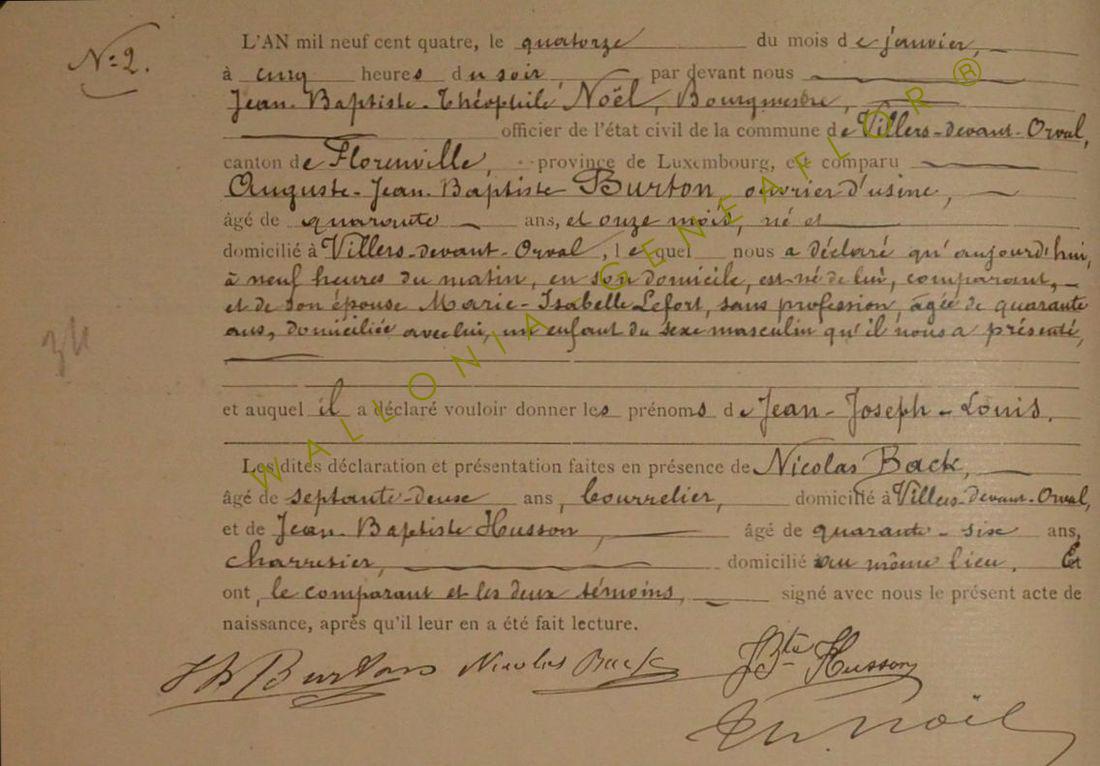 N: 2.
L'AN mil neuf cent quatre, le quatorze du mois de janvier,
à cinq heures du soir, par devant nous
Jean-Baptiste-Théophile Noël, Bourgmestre,
officier de l'état civil de la commune de Villers-devant-Orval,
canton de Florenville, province de Luxembourg, est comparu
Auguste-Jean-Baptiste Burton, ouvrier d'usine,
âgé de quarante ans, et onze mois, né et
domicilié à Villers-devant-Orval, lequel nous a déclaré qu'aujourd'hui,
à neuf heures du matin, en son domicile, est né de lui, comparant,
et de son épouse Marie-Isabelle Lefort, sans profession, âgée de quarante
ans, domiciliée avec lui, un enfant du sexe masculin qu'il nous a présenté,
34
et auquel il a déclaré vouloir donner les prénoms de Jean-Joseph-Louis.
Les dites déclaration et présentation faites en présence de Nicolas Back,
âgé de septante-deux ans, bourrelier, domicilié à Villers-devant-Orval,
et de Jean-Baptiste Husson, âgé de quarante-six ans,
charretier, domicilié au même lieu. Et
ont, le comparant et les deux témoins, signé avec nous le présent acte de
naissance, après qu'il leur en a été fait lecture.
JB Burton Nicolas Back JBte Husson
Th. Noël
WALLONIA GENEAFLOR ®